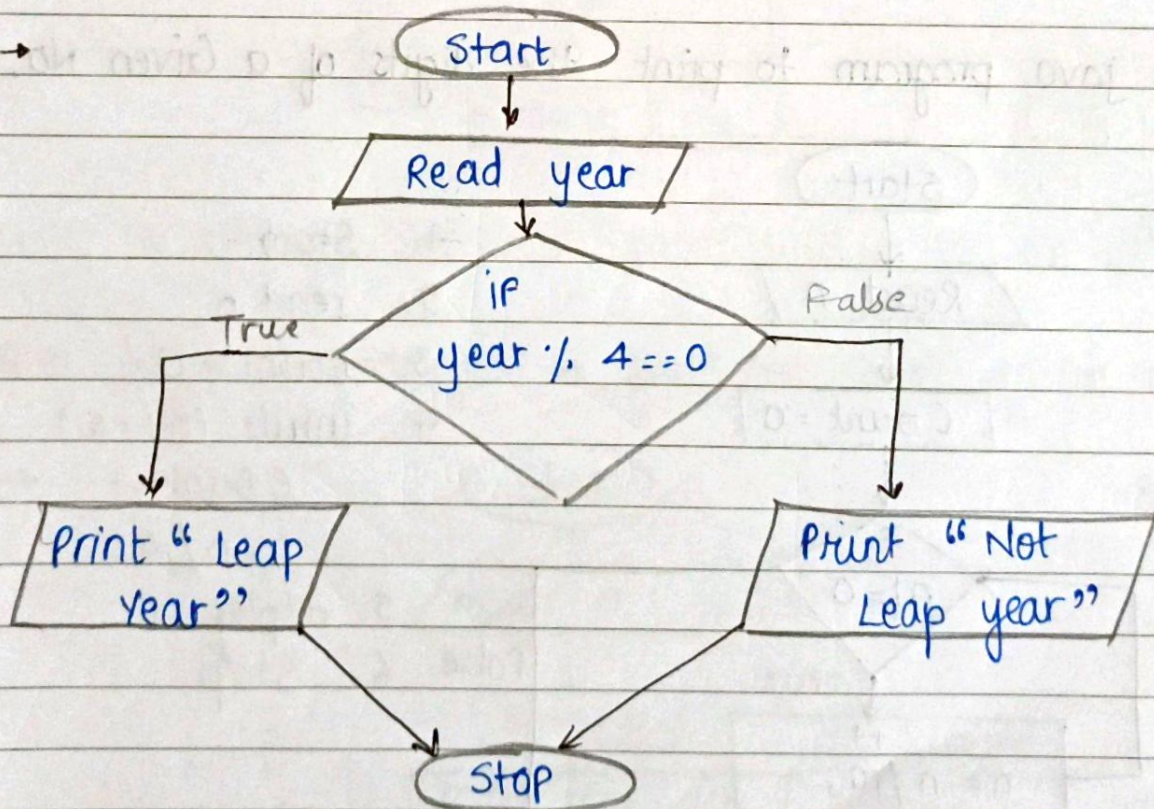 Start
Read year
if
year % 4==0
True
False
Print “ Leap
Year”
Print “ Not
Leap year”
Stop